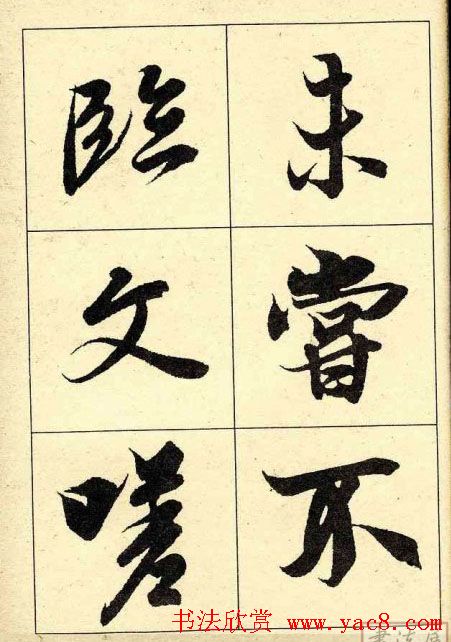 未嘗不
臨文嗟
书法欣赏 www.yac8.com